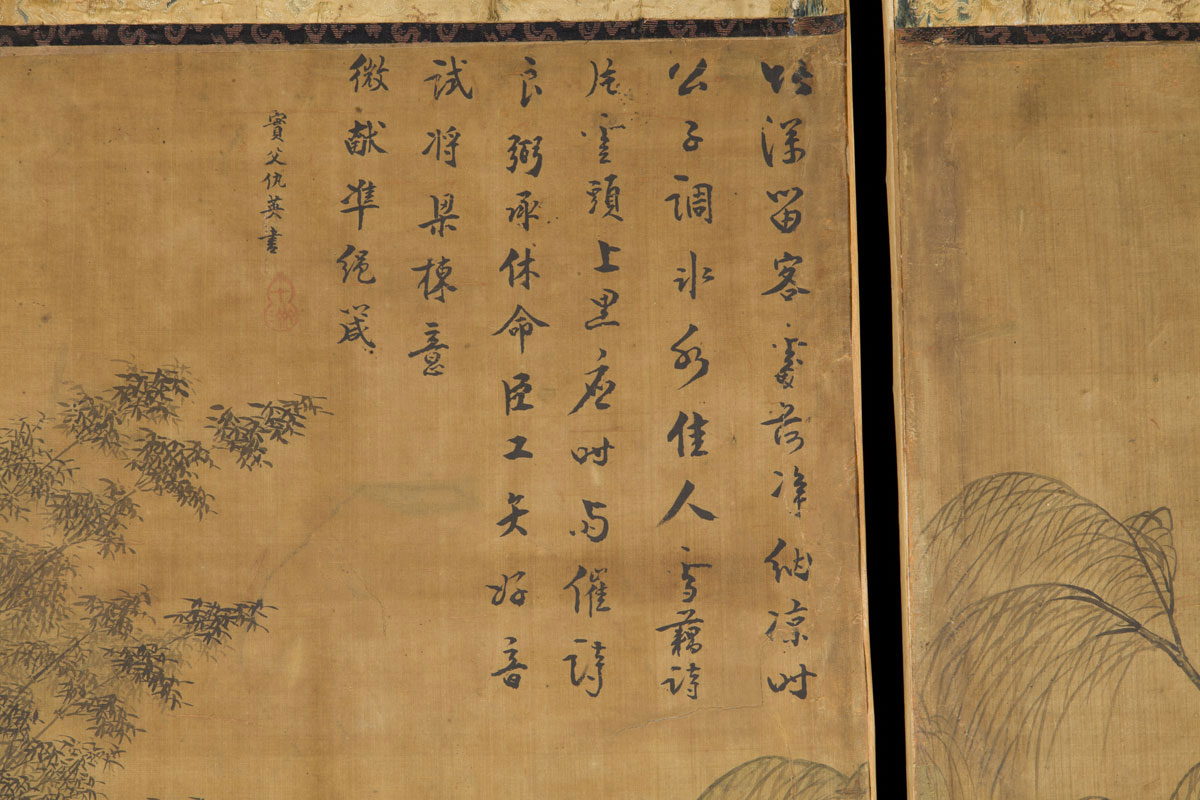 竹深留客處荷淨納凉時
公子調冰水佳人雪藕詩
片雲頭上黑應時雨催詩
良弼承休命臣工矢好音
試将梁棟意
微献準繩箴
實父仇英書